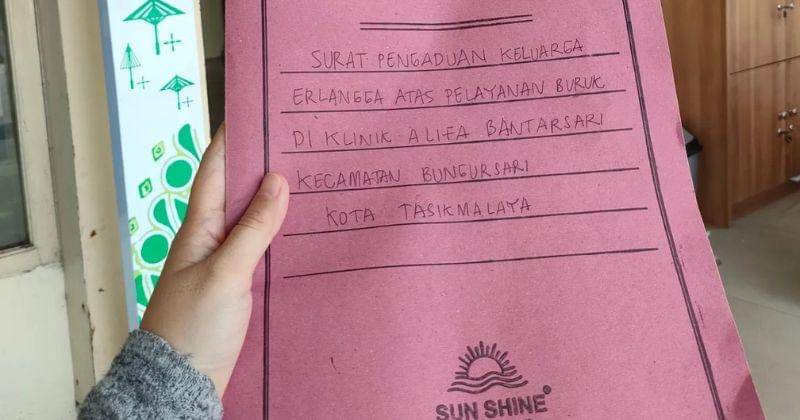 SURAT PENGADUAN KELUARGA
ERLANGGA ATAS PELAYANAN BURUK
DI KLINIK ALIFA BANTARSARI
KECAMATAN BUNGURSARI
KOTA TASIKMALAYA
SUN SHINE®